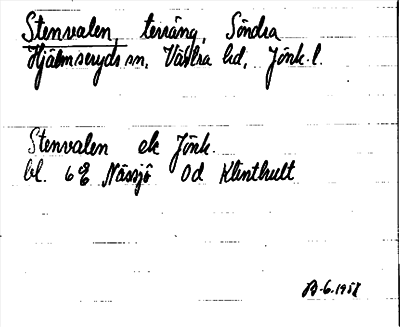 Stenvalen, terräng, Södra
Hjälmseryds sn, Västra hd, Jönk. l.
Stenvalen ek Jönk.
bl. 6E Nässjö 0d Klinthult